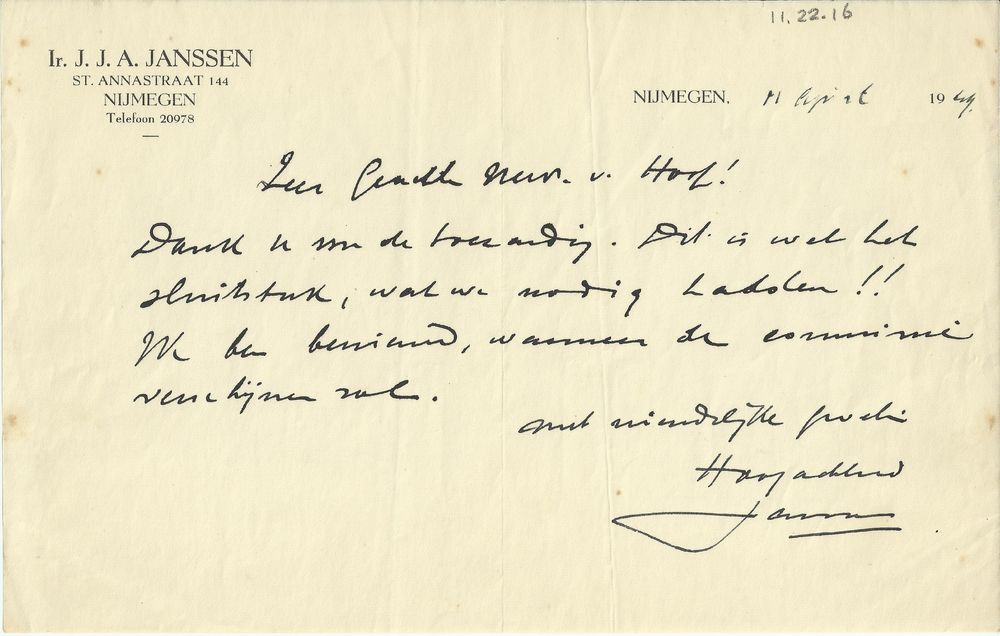 11.22.16
Ir. J. J. A. JANSSEN
ST. ANNASTRAAT 144
NIJMEGEN
Telefoon 20978
NIJMEGEN, 11 April 1949.
Zeer Geachte Mevr. v. Hoof!
Dank u voor de toezending. Dit is wel het
sluitstuk, wat we nodig hadden!!
Ik ben benieuwd, wanneer de commissie
verschijnen zal.
met vriendelijke groeten
Hoogachtend
Janssen